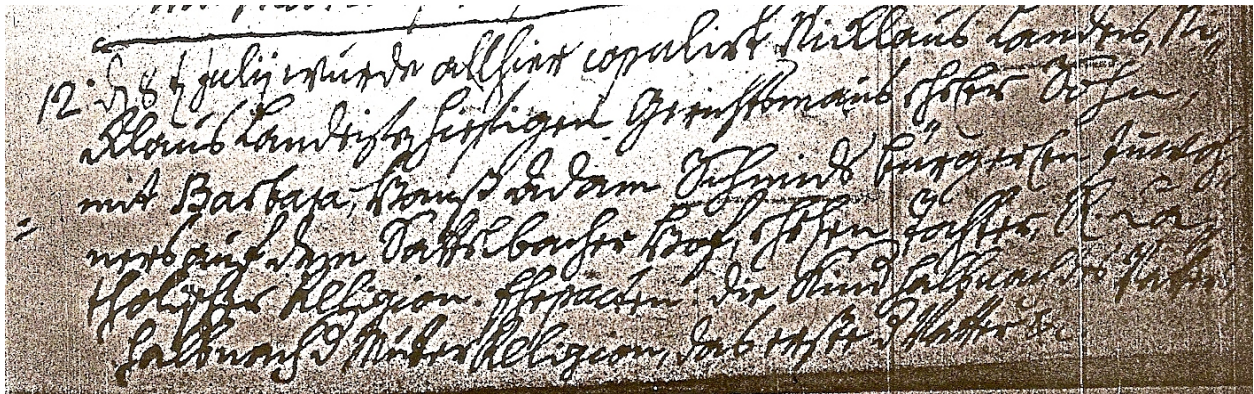 12. d 8t july wurde allhier copulirt Nicklaus Landes, Ni,
klaus Landes, hiesigen Gerichtsmans ehelr Sohn,
mit Barbara, Adam Schmids bürgerln Innwoh,
ners auf dem Sattelbacher Hof, ehelen Tochter, R. Ca,
tholischer Religion. Ehepacten: die Kind halb nach des Vatter,
halb nach d Mutter Religion, das erste d Vatter &c